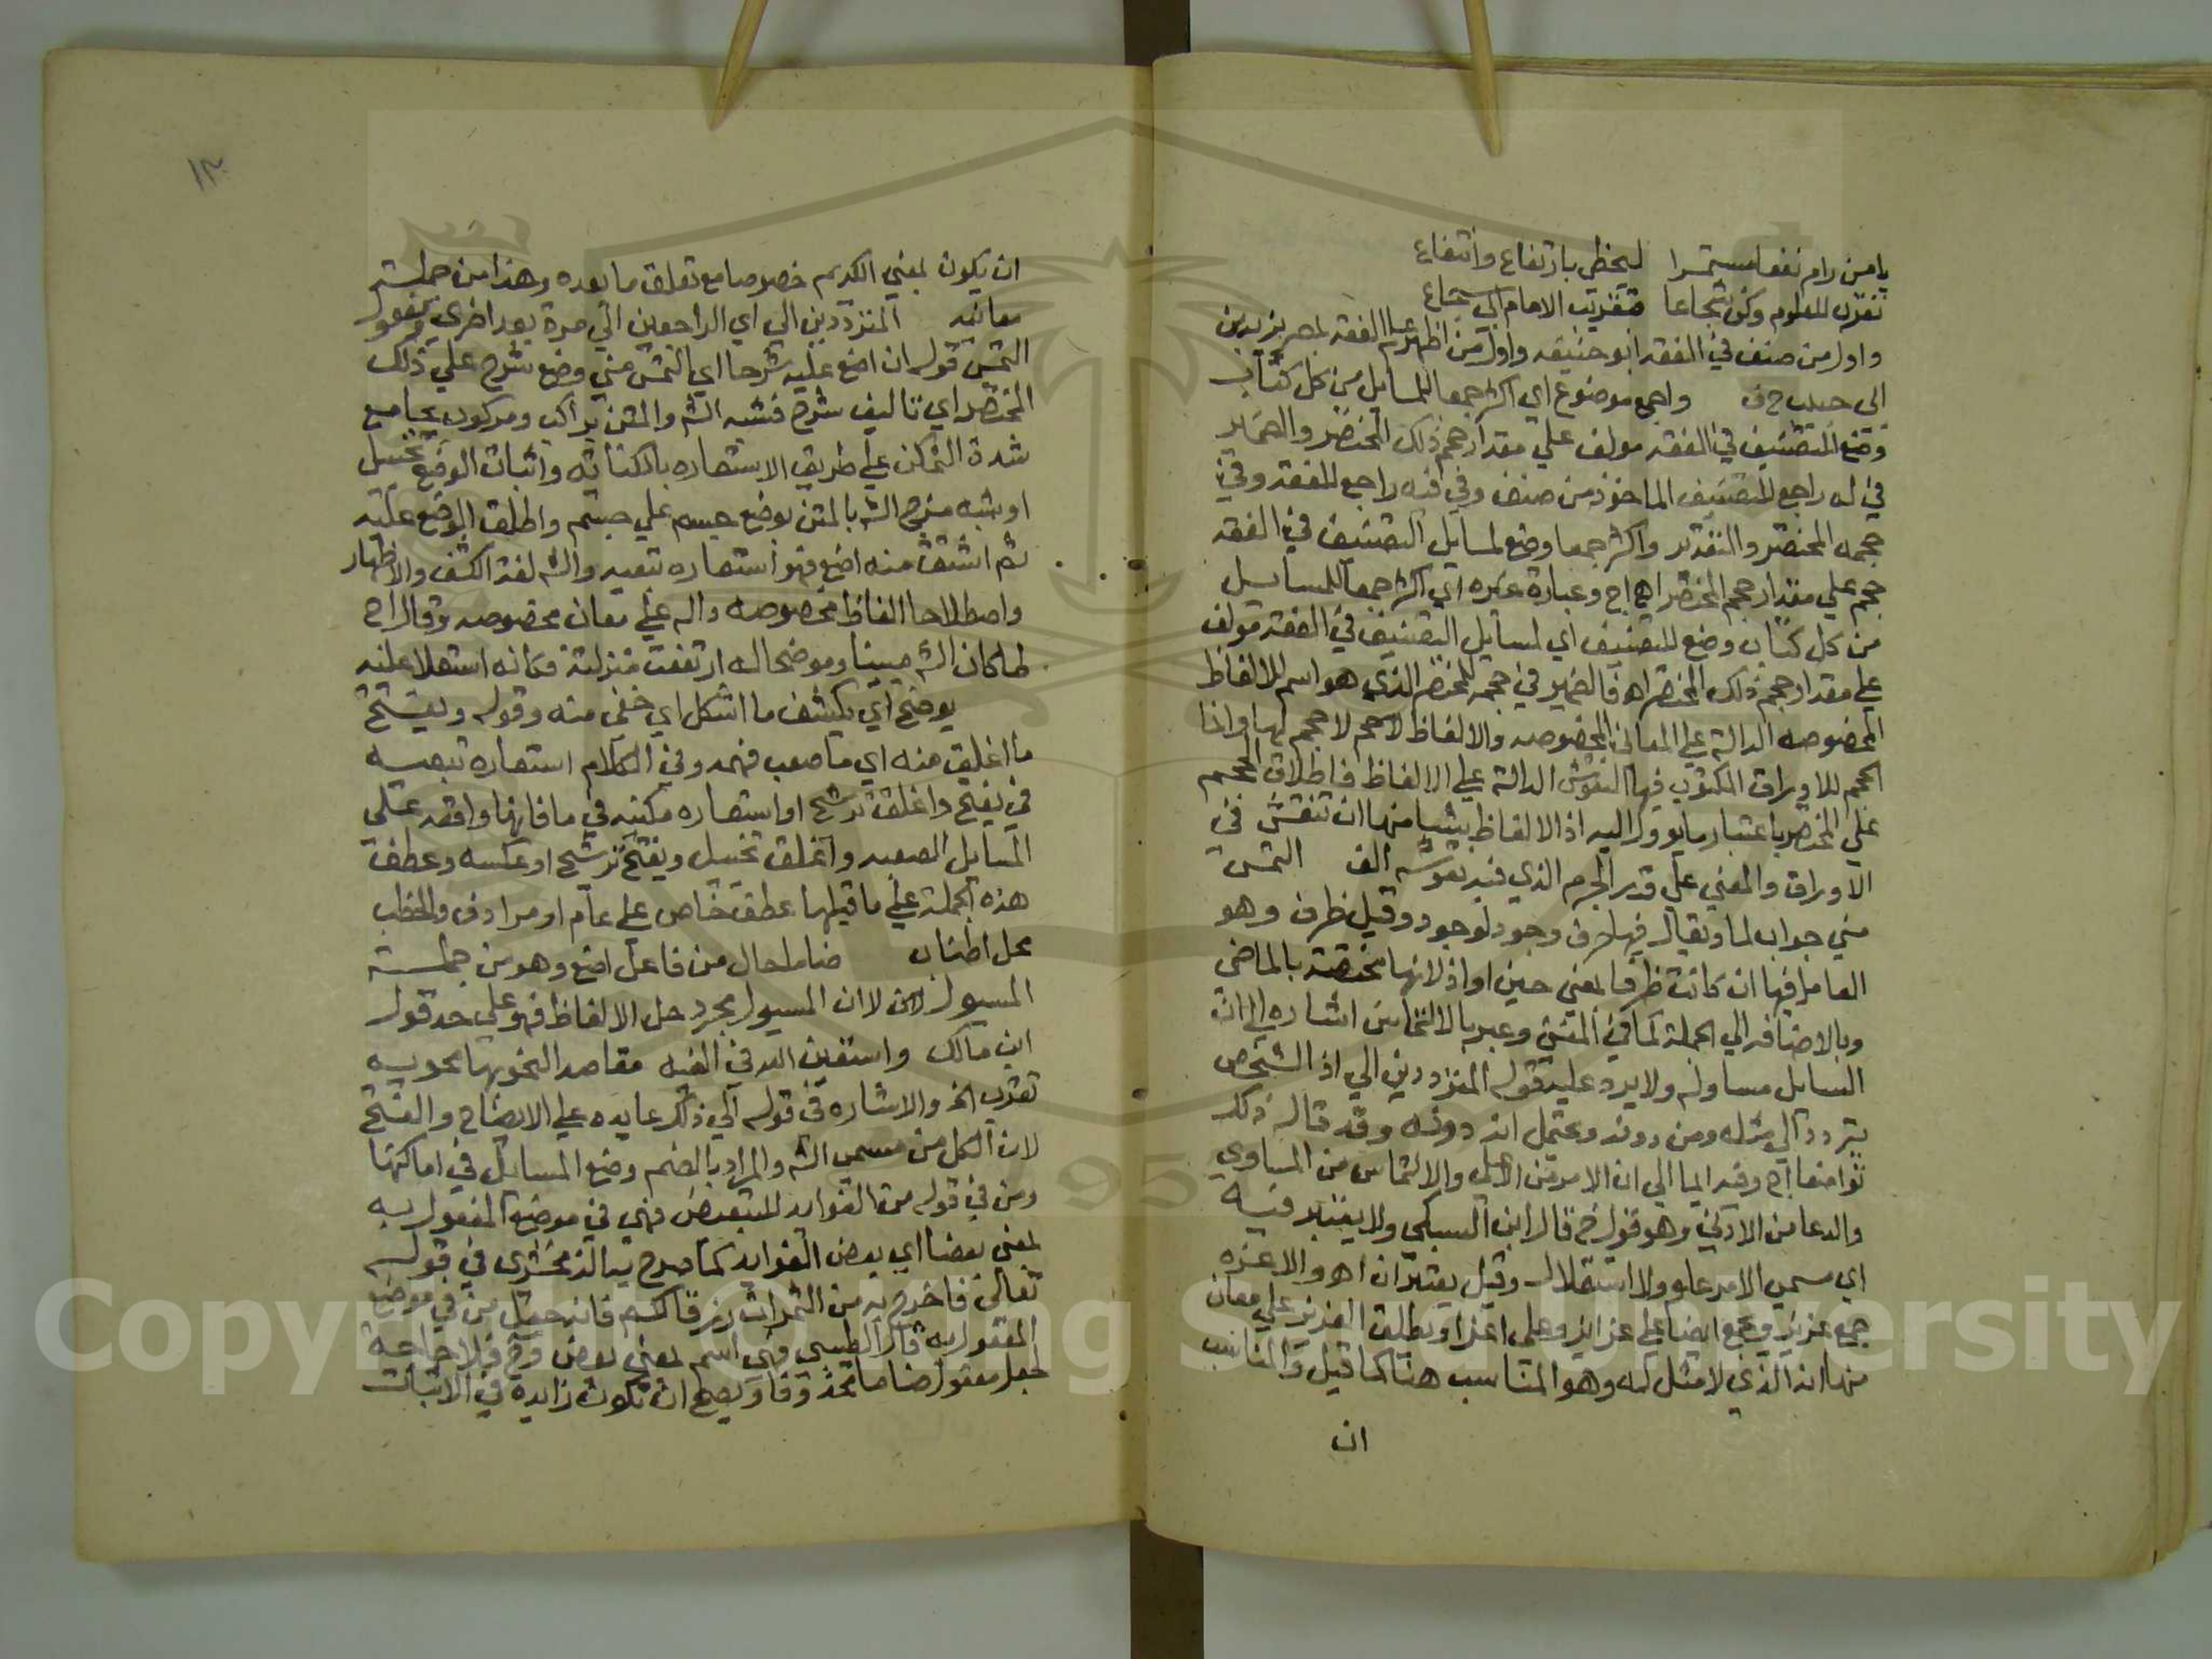 يا من رام نفعا مستمرا ليحظى بارتفاع وانتفاع
تقرب للعلوم وكن شجاعا بتقريب الامام ابي شجاع
واول من صنف في الفقه ابو حنيفه واول من اظهر علم الفقه بمصر يزيد بن
ابي حبيب واجمع موضوع اي اكثر جمعا للمسايل من كل كتاب
وضع للتصنيف في الفقه مولف علي مقدار حجم ذلك المختصر والضماير
في له راجع للتصنيف الماخوذ من صنف وفي فيه راجع للفقه وفي
حجمه المختصر والتقدير واكثر جمعا وضع لمسايل التصنيف في الفقه
حجم علي مقدار حجم المختصر اهـ وعبارة غيره اي اكثر جمعا للمسايل
من كل كتاب وضع للتصنيف اي لمسايل التصنيف في الفقه مولف
علي مقدار حجم ذلك المختصر اهـ فالضمير في حجمه للمختصر الذي هو اسم للالفاظ
المخصوصه الدالة علي المعاني المخصوصه والالفاظ لا حجم لها وانما
الحجم للاوراق المكتوب فيها النقوش الدالة علي الالفاظ فاطلاق الحجم
علي المختصر باعتبار ما يوول اليه اذ الالفاظ بنشا منها ان تنقش في
الاوراق والمعني علي قدر الجرم الذي فيه نقوشه التمس
مني جواب لما ويقال فيها حرف وجود لوجود وقيل ظرف وهو
العامل فيها ان كانت ظرفا بمعني حين او اذ لانها مختصة بالماضي
وبالاضافه الي الجملة كما في المغني وعبر بالالتماس اشاره الي ان
السايل مساو له ولا يرد عليه قوله المترددين الي اذ الشخص
يتردد الي مثله ومن دونه ويحتمل انه دونه وقد قاله ذلك
تواضعا وفيه ايما الي ان الامر من الاعلي والالتماس من المساوي
والدعا من الادني وهو قول قال ابن السبكي ولا يعتبر فيه
اي مسمي الامر علو ولا استعلاء وقيل يعتبران اهـ والاعزه
جمع عزيز ويجمع ايضا علي عزاز وعلي اعزا ويطلق العزيز علي معان
منها انه الذي لا مثل له وهو المناسب هنا كما قيل والمناسب
ان
١٣
ان يكون بمعني الكريم خصوصا مع تعلق ما بعده وهذا من جملة
معانيه المترددين الي اي الراجعين الي مرة بعد اخري ومفعول
التمس قوله ان اضع عليه شرحا اي التمس مني وضع شرح علي ذلك
المختصر اي تاليف شرح فشبه الشر والمتن براكب ومركوب بجامع
شدة التمكن علي طريق الاستعاره بالكنايه واثبات الوضع تخييل
او شبه مزج الشر بالمتن بوضع جسم علي جسم واطلق الوضع عليه
ثم اشتق منه اضع فهو استعاره تبعيه والشر لغة الكشف والاظهار
واصطلاحا الفاظ مخصوصه داله علي معان مخصوصه
لما كان الشر مبينا وموضحا له ارتفعت منزلته فكانه استعلا عليه
يوضح اي يكشف ما اشكل اي خفي منه وقوله ويفتح
ما اغلق منه اي ما صعب فهمه وفي الكلام استعاره تبعيه
في يفتح واغلق ترشيح او استعاره مكنيه في ما فانها واقعه علي
المسايل الصعبه واغلق تخييل ويفتح ترشيح او عكسه وعطف
هذه الجملة علي ما قبلها عطف خاص علي عام او مرادف والخطب
محل اطناب ضاما حال من فاعل اضع وهو من جملة
المسيول لان المسيول مجرد حل الالفاظ فهو علي حد قول
ابن مالك واستعين الله في الفيه مقاصد النحو بها محويه
تقرب الخ والاشاره في قوله الي ذلك عايده علي الايضاح والفتح
لان الكل من مسمي الشر والمراد بالضم وضع المسايل في اماكنها
ومن في قوله من الفوايد للتبعيض فهي في موضع المفعول به
بمعني بعضا اي بعض الفوايد كما صرح به الزمخشري في قوله
تعالي فاخرج به من الثمرات رزقا لكم فانه جعل من في موضع
المفعول به قال الطيبي وهي اسم بمعني بعض وح فلا حاجة
لجعل مفعول ضاما محذوفا ويصح ان تكون زايده في الاثبات
Copyright © King Saud University